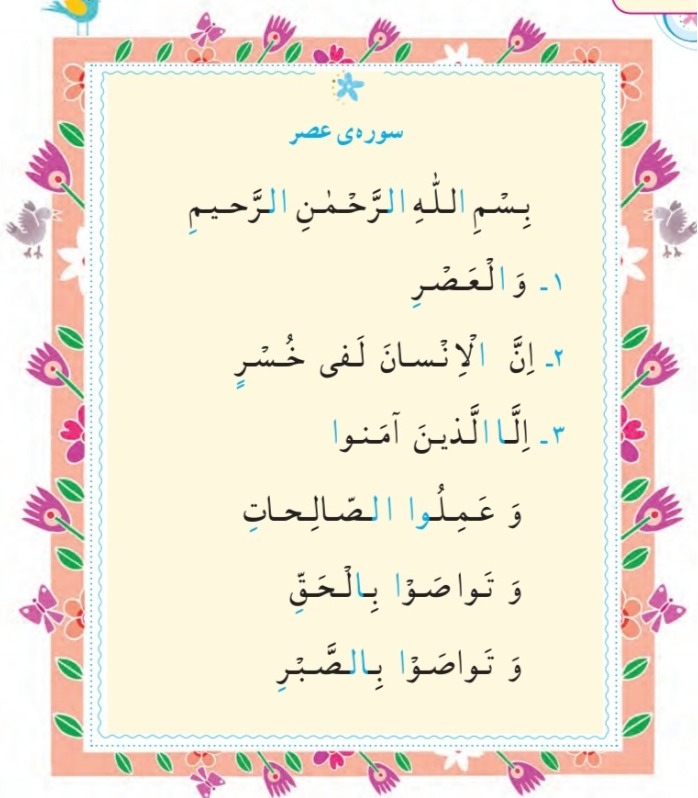 سوره‌ی عصر
بِسْمِ اللّٰهِ الرَّحْمٰنِ الرَّحیمِ
۱ـ وَ الْعَصْرِ
۲ـ اِنَّ الْاِنْسانَ لَفی خُسْرٍ
۳ـ اِلَّا الَّذینَ آمَنوا
وَ عَمِلُوا الصّالِحاتِ
وَ تَواصَوْا بِالْحَقِّ
وَ تَواصَوْا بِالصَّبْرِ